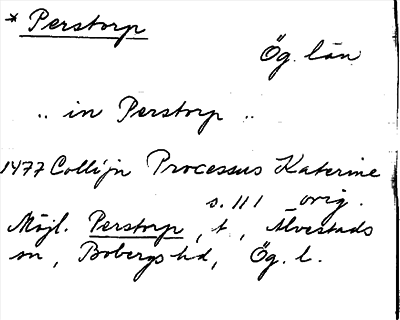 * Perstorp
Ög. län
.. in Perstorp ..
1477 Collijn Processus Katerine
s. 111 orig.
Möjl. Perstorp, t, Alvestads
sn, Bobergs hd, Ög. l.